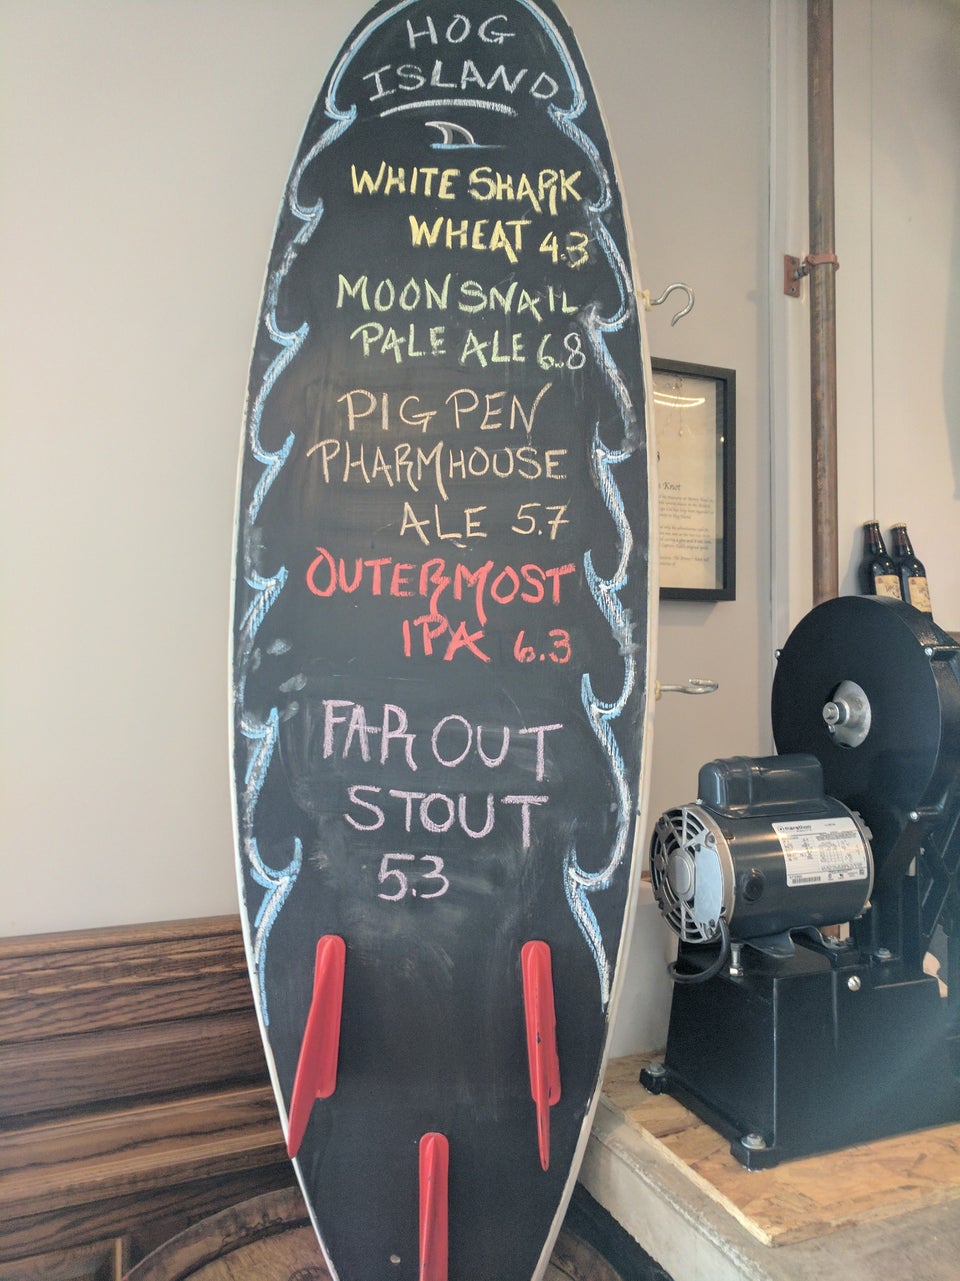 HOG
ISLAND
WHITE SHARK
WHEAT 4.3
MOON SNAIL
PALE ALE 6.8
PIG PEN
PHARMHOUSE
ALE 5.7
OUTERMOST
IPA 6.3
FAR OUT
STOUT
5.3
Knot